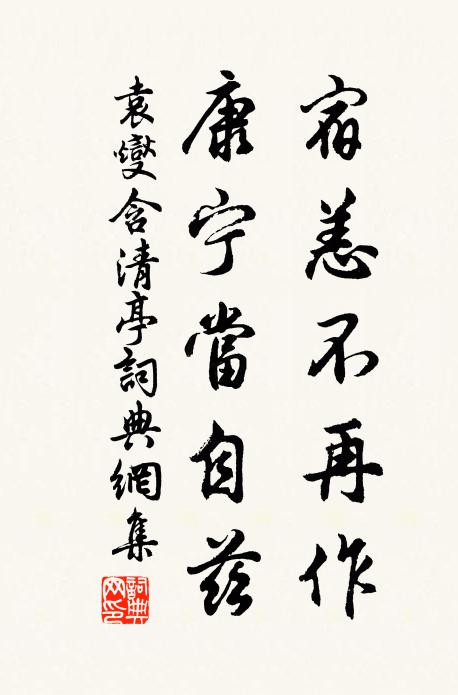 宿恙不再作
康宁當自茲
袁燮含清亭詞典網集
詞典網印